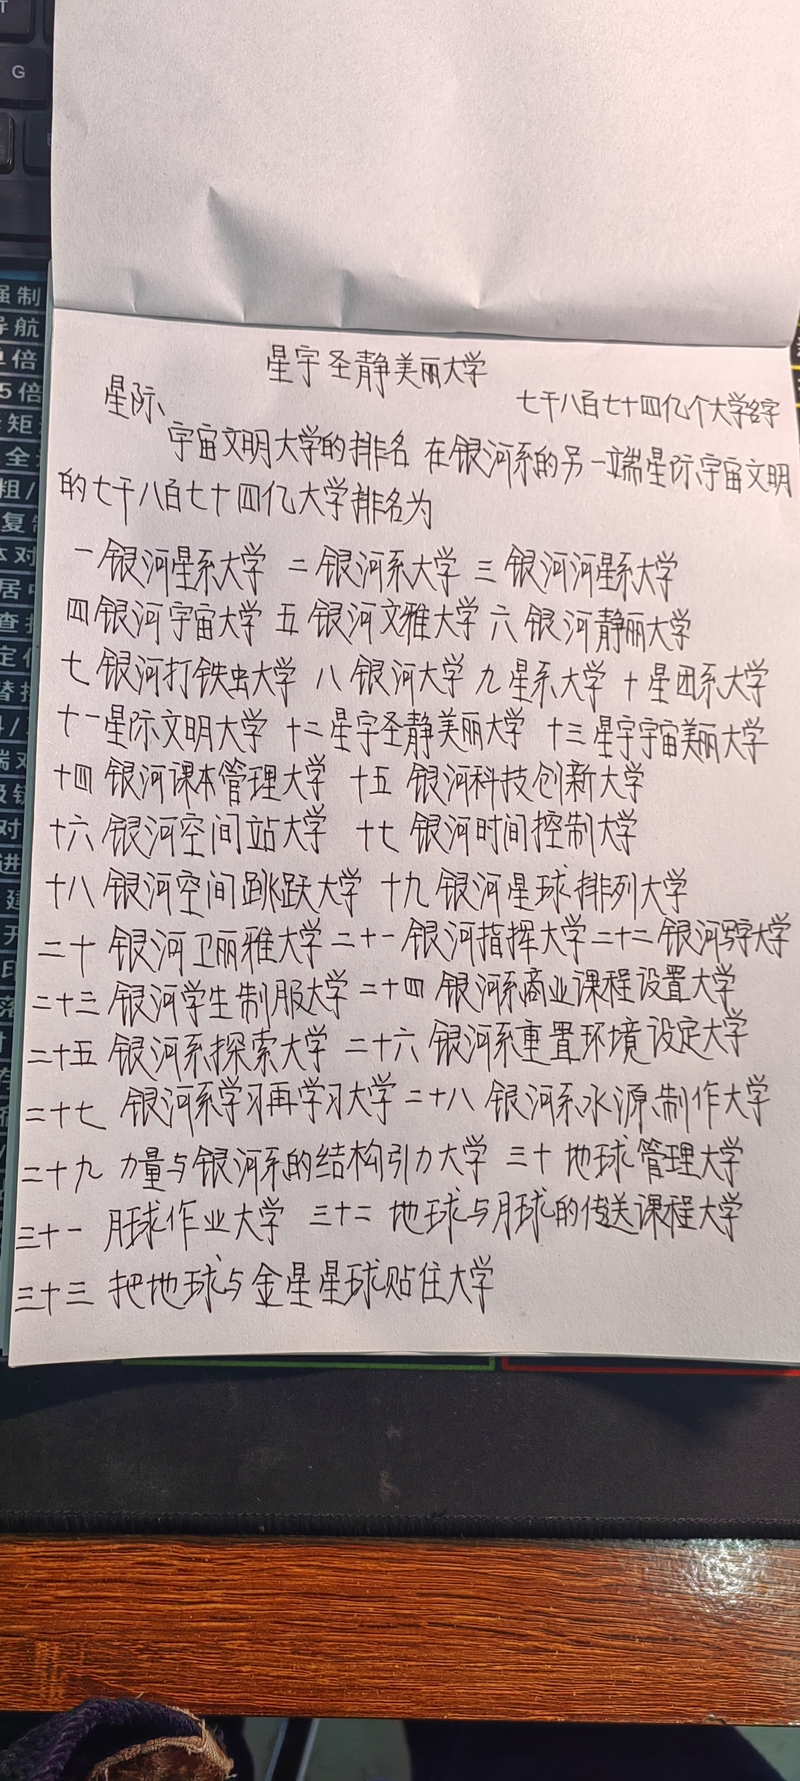 星宇圣静美丽大学
七千八百七十四亿个大学名字
星际、
宇宙文明大学的排名 在银河系的另一端星际、宇宙文明
的七千八百七十四亿大学排名为
一银河星系大学 二银河系大学 三银河河星系大学
四银河宇宙大学 五银河文雅大学 六银河静丽大学
七银河打铁虫大学 八银河大学 九星系大学 十星团系大学
十一星际文明大学 十二星宇圣静美丽大学 十三星宇宇宙美丽大学
十四银河课本管理大学 十五 银河科技创新大学
十六银河空间站大学 十七 银河时间控制大学
十八银河空间跳跃大学 十九银河星球排列大学
二十 银河卫丽雅大学 二十一银河指挥大学 二十二银河大学
二十三银河学生制服大学 二十四银河系商业课程设置大学
二十五 银河系探索大学 二十六 银河系重置环境设定大学
二十七 银河系学习再学习大学 二十八 银河系水源制作大学
二十九 力量与银河系的结构引力大学 三十 地球管理大学
三十一 月球作业大学 三十二 地球与月球的传送课程大学
三十三 把地球与金星星球贴住大学
G
强制
导航
5倍
矩
全
复制
居中
查找
替换